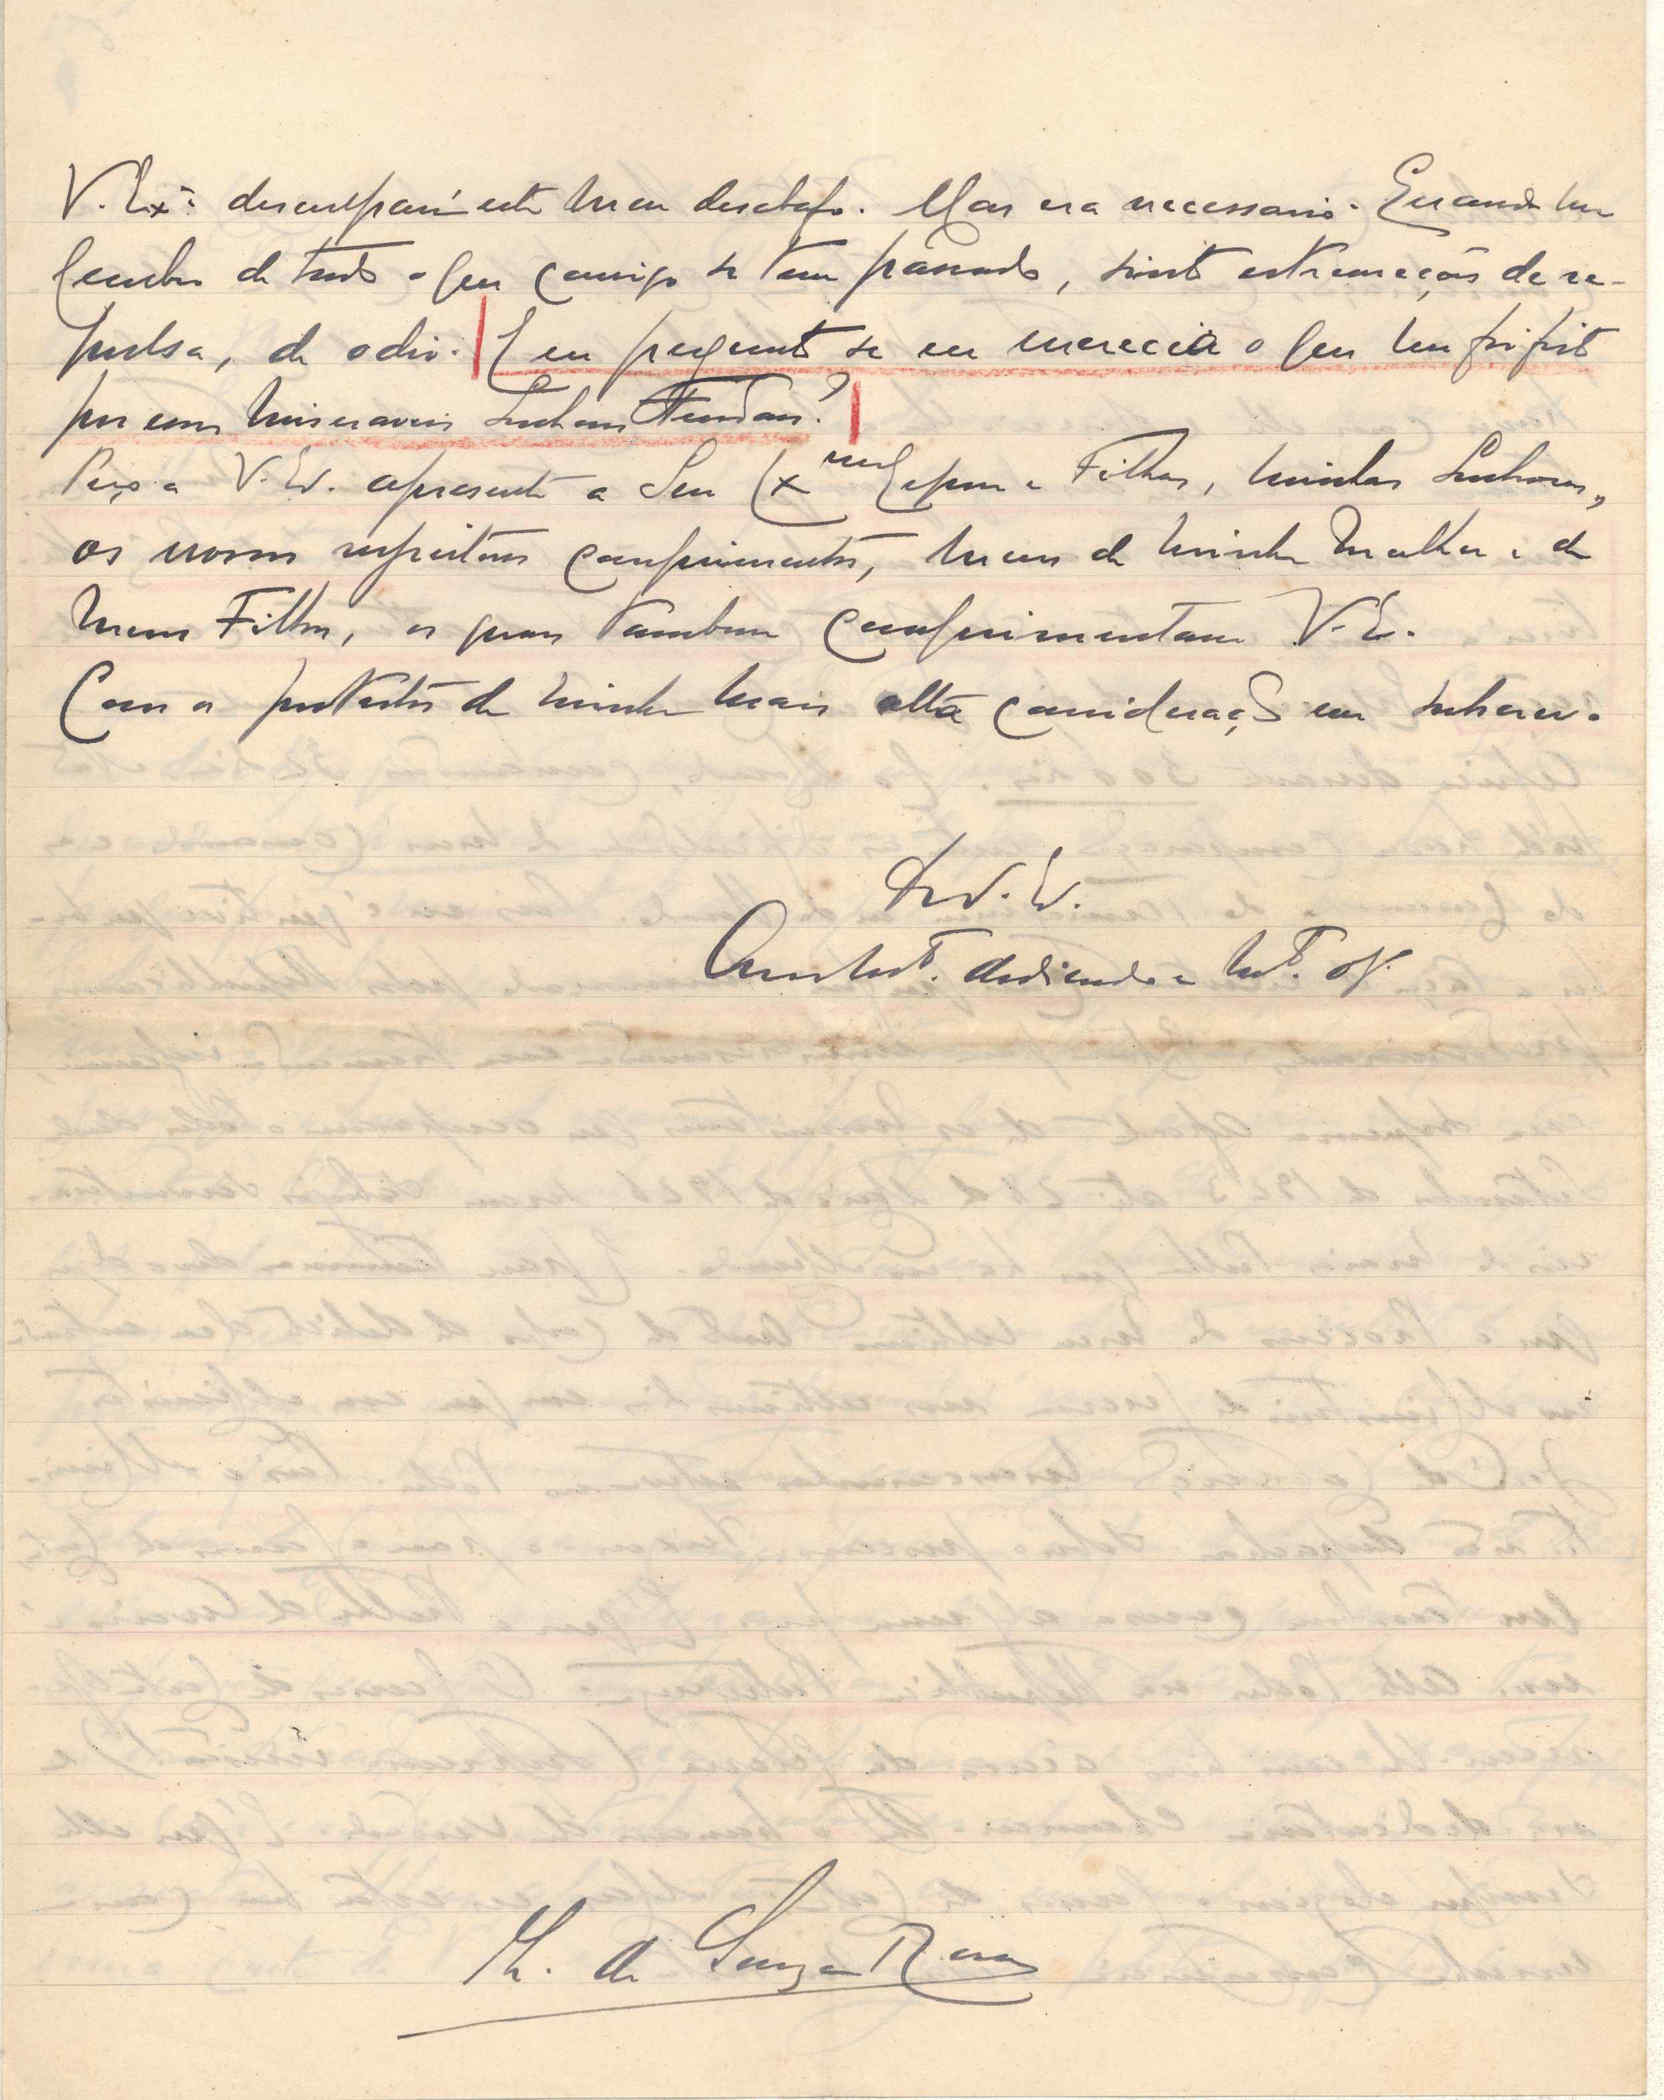 V. Exª desculpará este meu desabafo. Mas era necessario. Quando me
lembro de tudo o que comigo se tem passado, sinto estremeções de re-
pulsa, de odio. E eu pergunto se eu merecia o que me foi feito
por esses miseraveis
Peço a V. Ex. apresente a Sua Exma Esposa e Filhas, minhas Senhoras,
os nossos respeitosos cumprimentos, meus de minha mulher e de
meus Filhos, os quais tambem cumprimentam V. E.
Com os protestos de minha mais alta consideração me subscrevo.
De V. Ex.
Amo. mto. dedicado e mto. obg.
de Souza Rosa